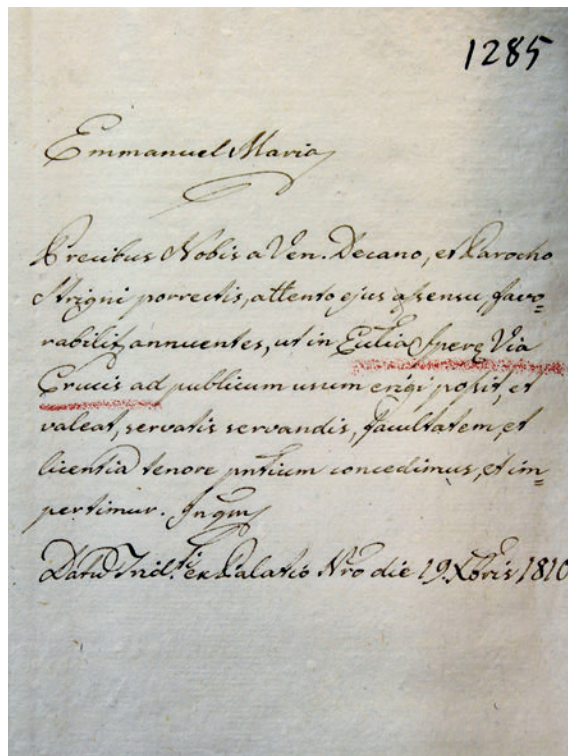 1285
Emmanuel Maria
Precibus Nobis a Ven. Decano, et Parocho
Strigni porrectis, attento ejus assensu favo=
rabilit, annuentes, ut in Eccl͞ia Spere Via
Crucis ad publicum usum erigi possit, et
valeat, servatis servandis, facultatem, et
licentia tenore pntium concedimus, et im=
pertimur. In qm
Datu Trid.ti ex Palatio Nro die 19. Xbris 1810